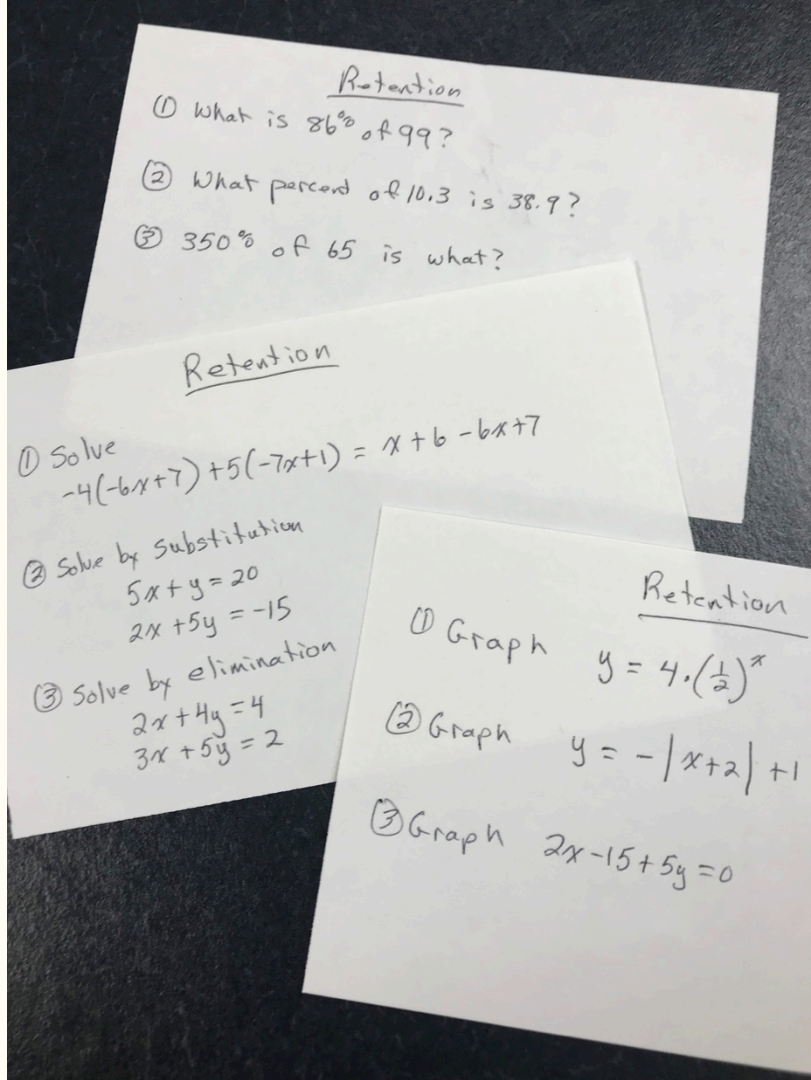 Retention
① What is 86% of 99?
② What percent of 10.3 is 38.9?
③ 350% of 65 is what?
Retention
① Solve
-4(-6x+7)+5(-7x+1) = x+6-6x+7
② Solve by substitution
5x+y=20
2x+5y=-15
③ Solve by elimination
2x+4y=4
3x+5y=2
Retention
① Graph y=4·(1/2)^x
② Graph y=-|x+2|+1
③ Graph 2x-15+5y=0